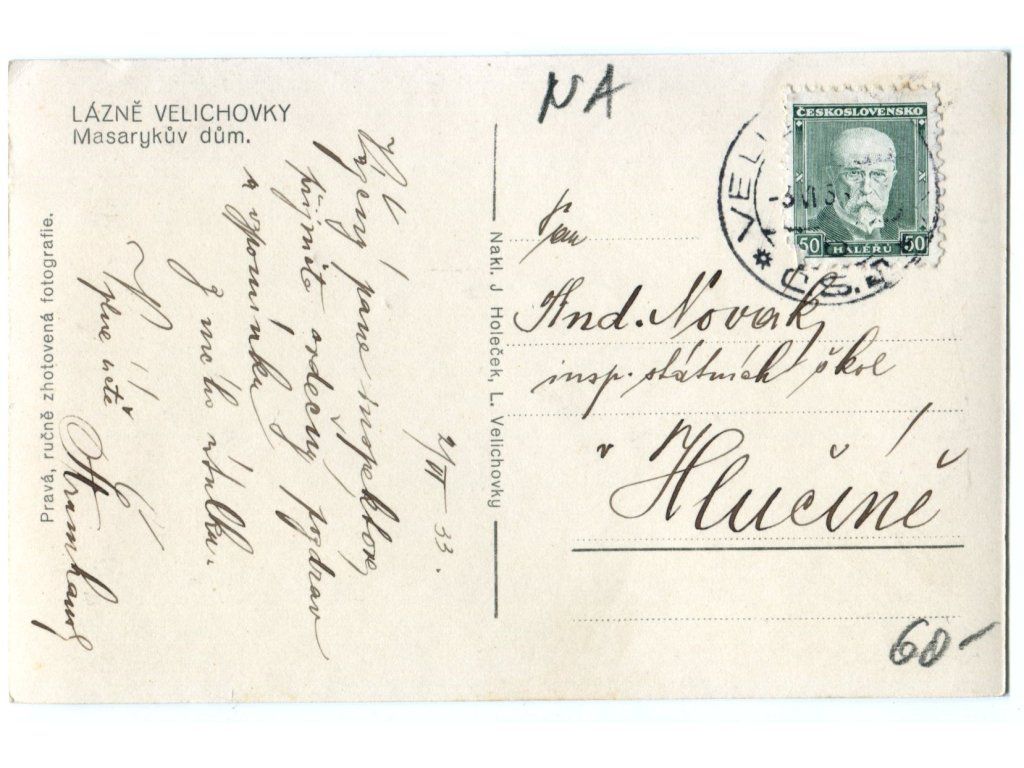 LÁZNĚ VELICHOVKY
Masarykův dům.
Pravá, ručně zhotovená fotografie.
Nakl. J. Holeček, L. Velichovky
NA
ČESKOSLOVENSKO
50 HALÉŘŮ 50
VELI
-3.VI.3
Č.S.P.
2/VI 33.
Vážený pane inspektore
přijměte srdečný pozdrav
a vzpomínku
z mého
V
plné úctě
Pan
And. Novák,
insp. státních škol
v Hlučíně
60-